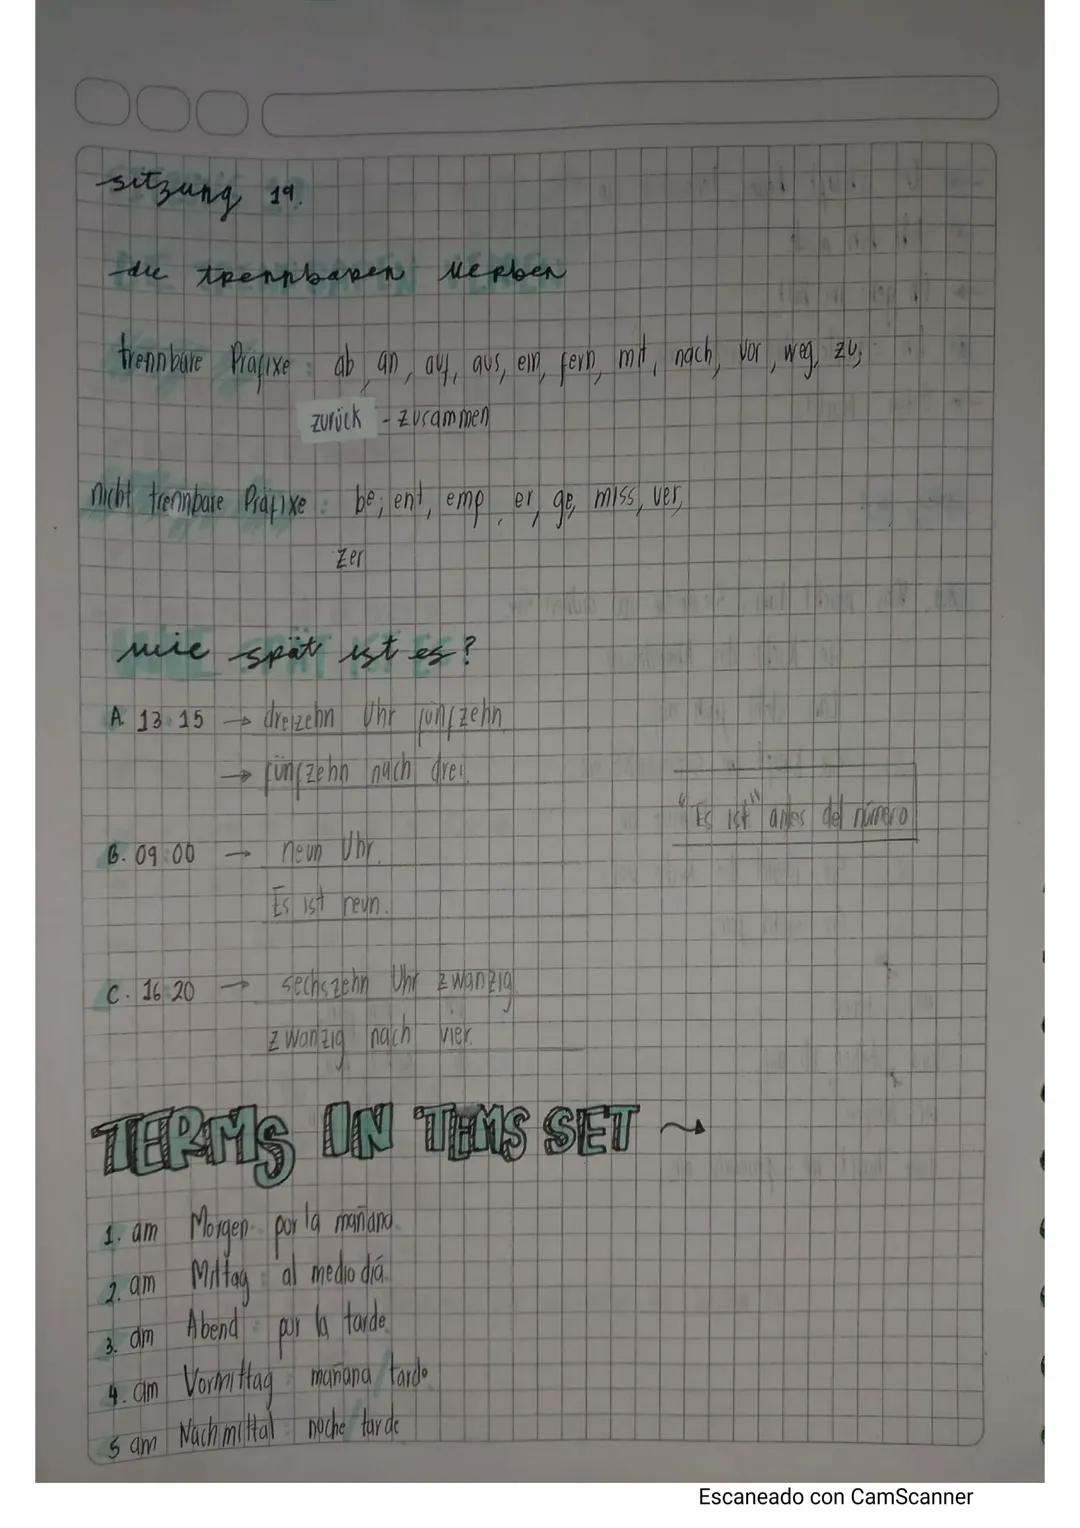 sitzung 19.
die trennbaren Verben
trennbare Präfixe : ab, an, auf, aus, ein, fern, mit, nach, vor, weg, zu,
zurück - zusammen
nicht trennbare Präfixe : be, ent, emp, er, ge, miss, ver,
zer
wie spät ist es?
A. 13:15 → dreizehn Uhr fünfzehn
→ fünfzehn nach drei
"Es ist" antes del número
B. 09:00 → neun Uhr.
Es ist neun.
C. 16:20 → sechszehn Uhr zwanzig
zwanzig nach vier.
TERMS IN TEMS SET ~→
1. am Morgen : por la mañana.
2. am Mittag : al medio día.
3. am Abend : por la tarde
4. am Vormittag : mañana / tarde
5 am Nachmittal : noche / tarde
Escaneado con CamScanner